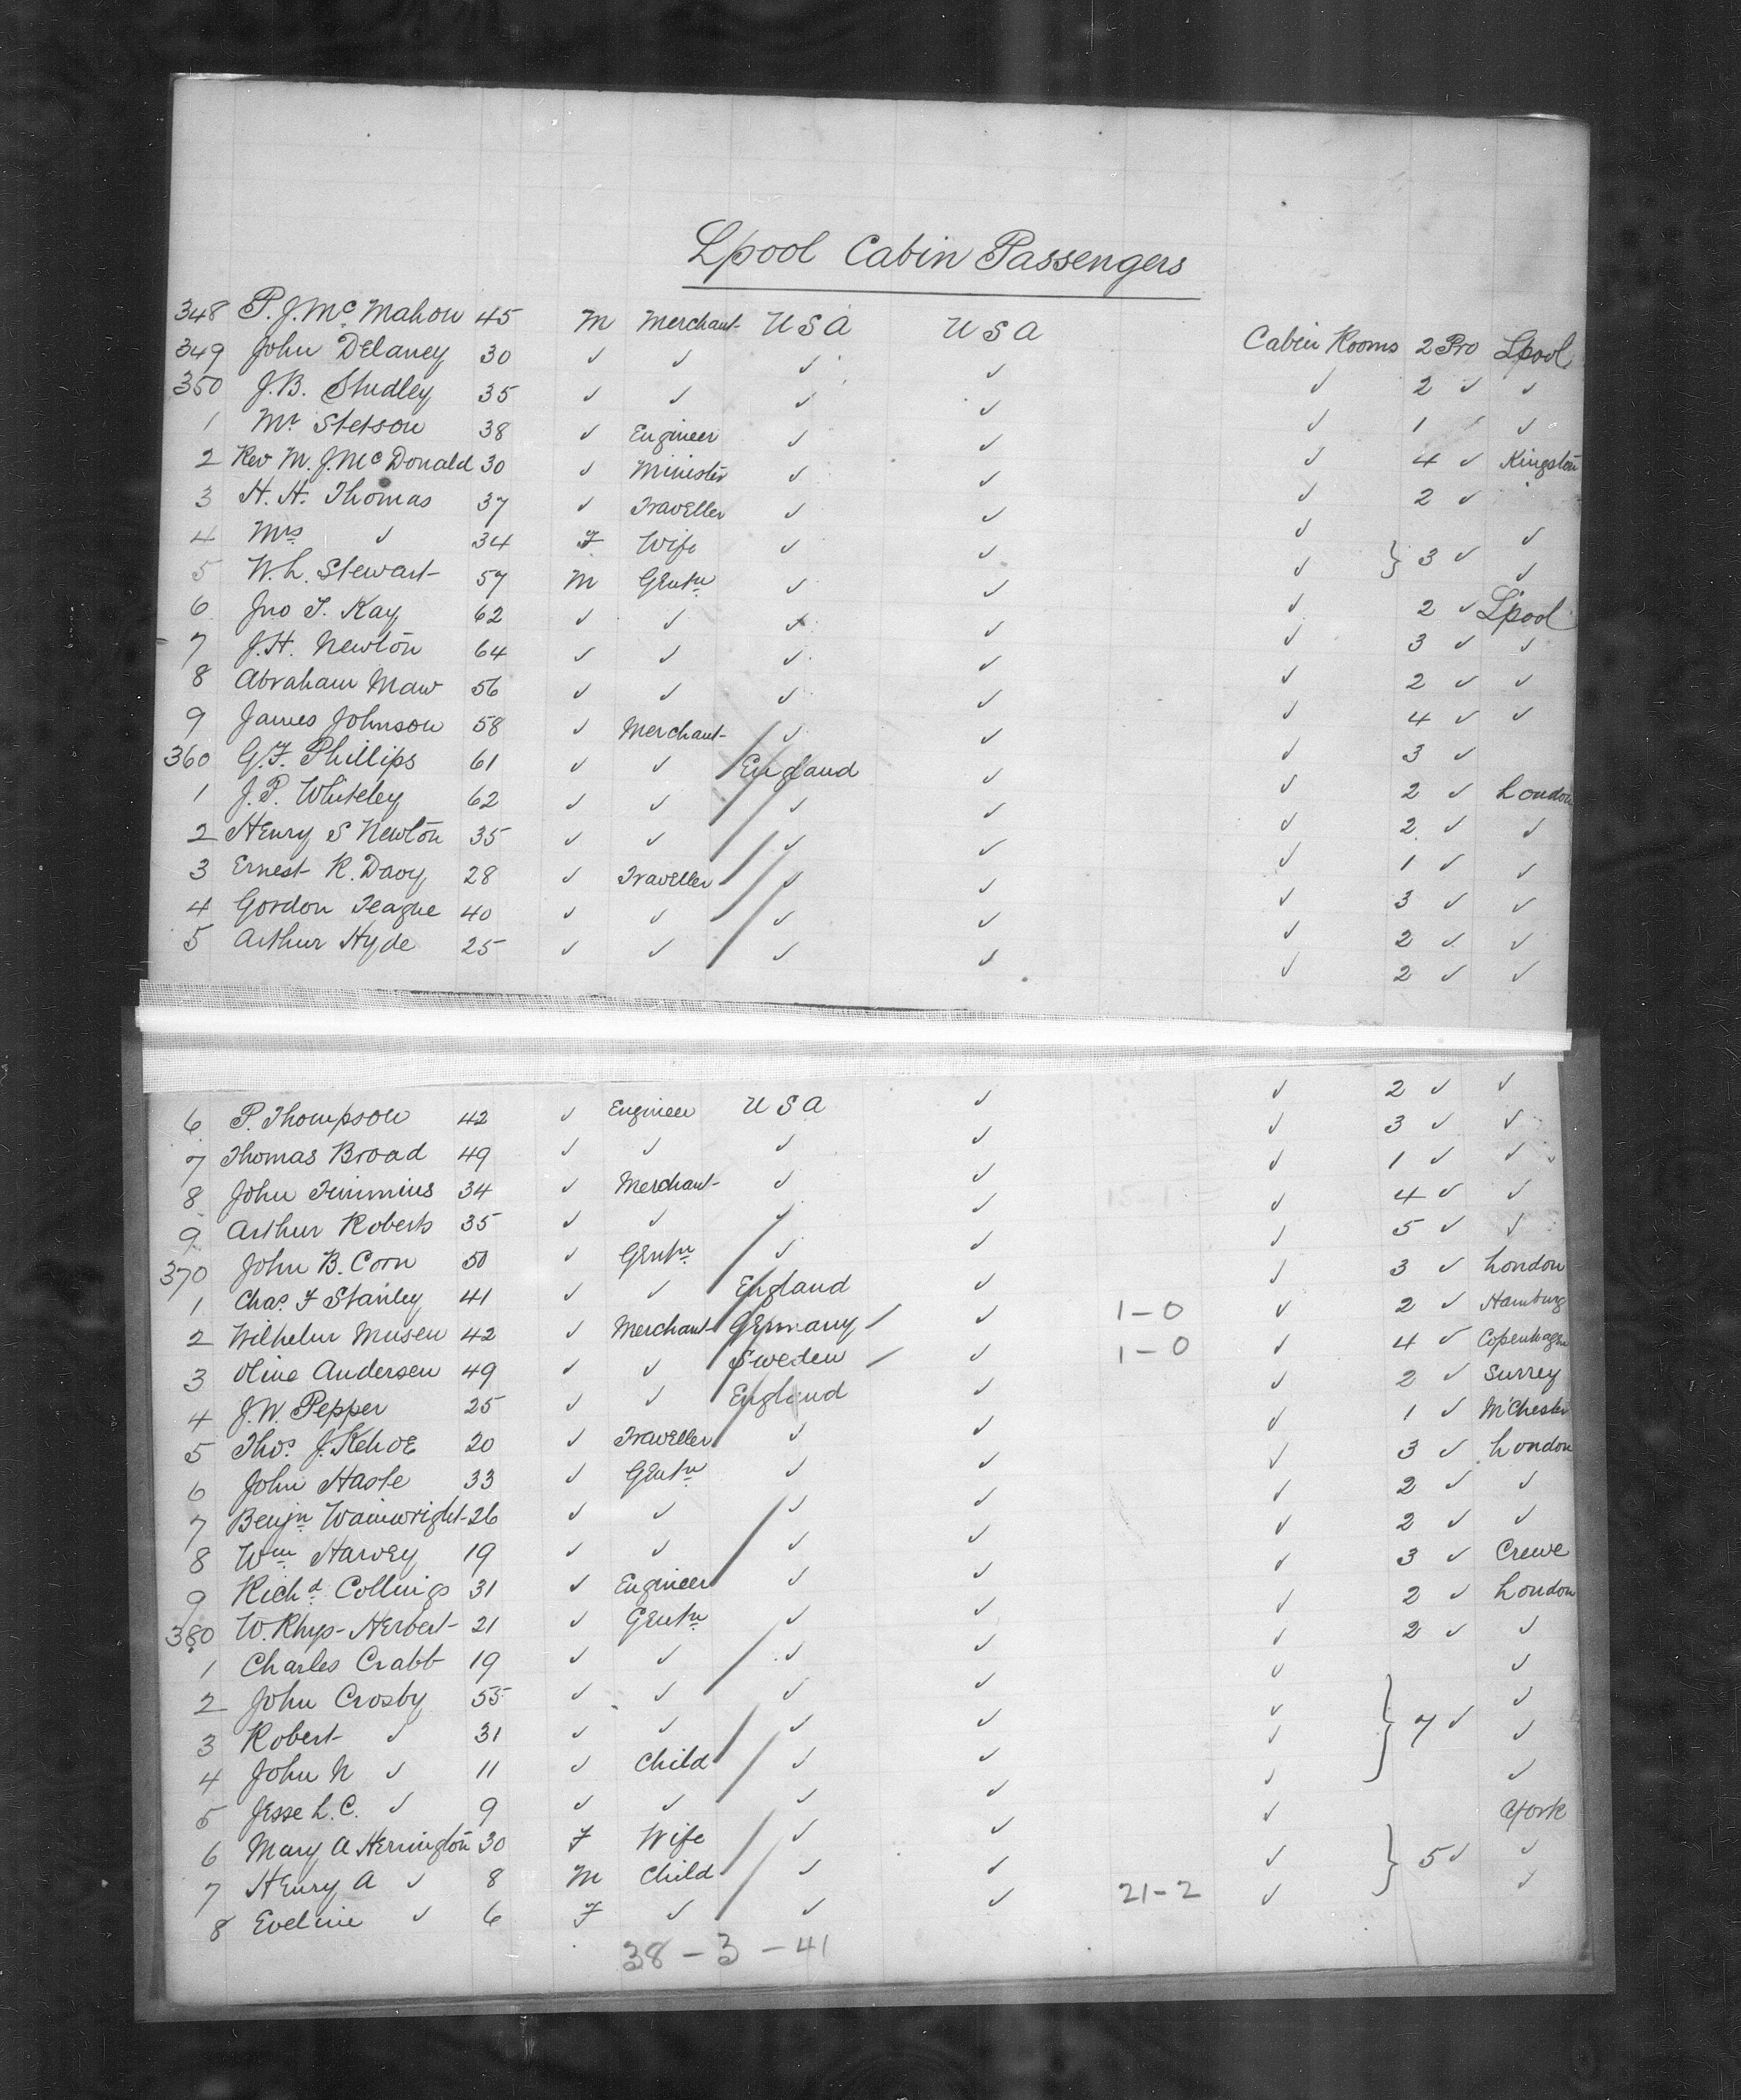 Lpool Cabin Passengers
348 P. J. Mc Mahon 45 M Merchant U S A U S A Cabin Rooms 2 Pro Lpool
349 John Delaney 30 ✓ ✓ ✓ ✓ ✓ 2 ✓ ✓
350 J. B. Studley 35 ✓ ✓ ✓ ✓ ✓ 1 ✓ ✓
1 Mr Stetson 38 ✓ Engineer ✓ ✓ ✓ 4 ✓ Kingston
2 Rev M. J. Mc Donald 30 ✓ Minister ✓ ✓ ✓ 2 ✓
3 H. H. Thomas 37 ✓ Traveller ✓ ✓ ✓ } 3 ✓ ✓
4 Mrs ✓ 34 F Wife ✓ ✓ ✓ ✓
5 W. L. Stewart 57 M Gentn ✓ ✓ ✓ 2 ✓ L'pool
6 Jno T. Kay 62 ✓ ✓ ✓ ✓ ✓ 3 ✓ ✓
7 J. H. Newton 64 ✓ ✓ ✓ ✓ ✓ 2 ✓ ✓
8 Abraham Maw 56 ✓ ✓ ✓ ✓ ✓ 4 ✓ ✓
9 James Johnson 58 ✓ Merchant ✓ ✓ ✓ 3 ✓
360 G. F. Phillips 61 ✓ ✓ England ✓ ✓ 2 ✓ London
1 J. P. Whiteley 62 ✓ ✓ ✓ ✓ ✓ 2 ✓ ✓
2 Henry S Newton 35 ✓ ✓ ✓ ✓ ✓ 1 ✓ ✓
3 Ernest R. Davy 28 ✓ Traveller ✓ ✓ ✓ 3 ✓ ✓
4 Gordon Teague 40 ✓ ✓ ✓ ✓ ✓ 2 ✓ ✓
5 Arthur Hyde 25 ✓ ✓ ✓ ✓ ✓ 2 ✓ ✓
6 P. Thompson 42 ✓ Engineer U S A ✓ ✓ 2 ✓ ✓
7 Thomas Broad 49 ✓ ✓ ✓ ✓ ✓ 3 ✓ ✓
8 John Timmins 34 ✓ Merchant ✓ ✓ ✓ 1 ✓ ✓
9 Arthur Roberts 35 ✓ ✓ ✓ ✓ ✓ 4 ✓ ✓
370 John B. Corn 50 ✓ Gentn ✓ ✓ ✓ 5 ✓ ✓
1 Chas. F Stanley 41 ✓ ✓ England ✓ ✓ 3 ✓ London
2 Wilhelm Musen 42 ✓ Merchant Germany ✓ 1-0 ✓ 2 ✓ Hamburg
3 Oline Andersen 49 ✓ ✓ Sweden ✓ 1-0 ✓ 4 ✓ Copenhagen
4 J. W. Pepper 25 ✓ ✓ England ✓ ✓ 2 ✓ Surrey
5 Thos. J. Kehoe 20 ✓ Traveller ✓ ✓ ✓ 1 ✓ M'Chester
6 John Hasle 33 ✓ Gentn ✓ ✓ ✓ 3 ✓ London
7 Benjn Wainwright 26 ✓ ✓ ✓ ✓ ✓ 2 ✓ ✓
8 Wm Harvey 19 ✓ ✓ ✓ ✓ ✓ 2 ✓ ✓
9 Richd Collings 31 ✓ Engineer ✓ ✓ ✓ 3 ✓ Crewe
380 W. Rhys-Herbert 21 ✓ Gentn ✓ ✓ ✓ 2 ✓ London
1 Charles Crabb 19 ✓ ✓ ✓ ✓ ✓ 2 ✓ ✓
2 John Crosby 55 ✓ ✓ ✓ ✓ ✓ ✓
3 Robert ✓ 31 ✓ ✓ ✓ ✓ ✓ } 7 ✓ ✓
4 John N ✓ 11 ✓ Child ✓ ✓ ✓ ✓
5 Jesse L. C. ✓ 9 ✓ ✓ ✓ ✓ ✓ ✓
6 Mary A Herrington 30 F Wife ✓ ✓ ✓ York
7 Henry A ✓ 8 M Child ✓ ✓ ✓ } 5 ✓ ✓
8 Eveline ✓ 6 F ✓ ✓ ✓ 21-2 ✓ ✓
38 - 3 - 41